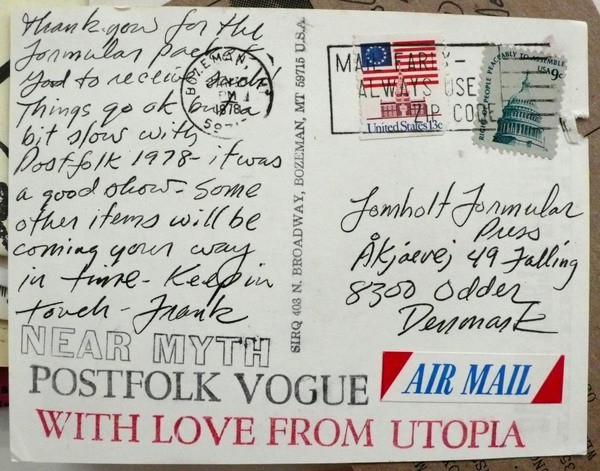 Thank you for the
Formular packet
Good to receive
Things go ok but a
bit slow with
Postfolk 1978 - it was
a good show - Some
other items will be
coming your way
in time - Keep in
touch - Frank
NEAR MYTH
POSTFOLK VOGUE
WITH LOVE FROM UTOPIA
SIRQ 403 N. BROADWAY, BOZEMAN, MT 59715 U.S.A.
BOZEMAN, MT
PM
1978
MAIL EARLY-
ALWAYS USE
ZIP CODE
United States 13c
RIGHT OF PEOPLE PEACEABLY TO ASSEMBLE
USA 9c
Lomholt Formular
Press
Åkjaevej 49 Falling
8300 Odder
Denmark
AIR MAIL